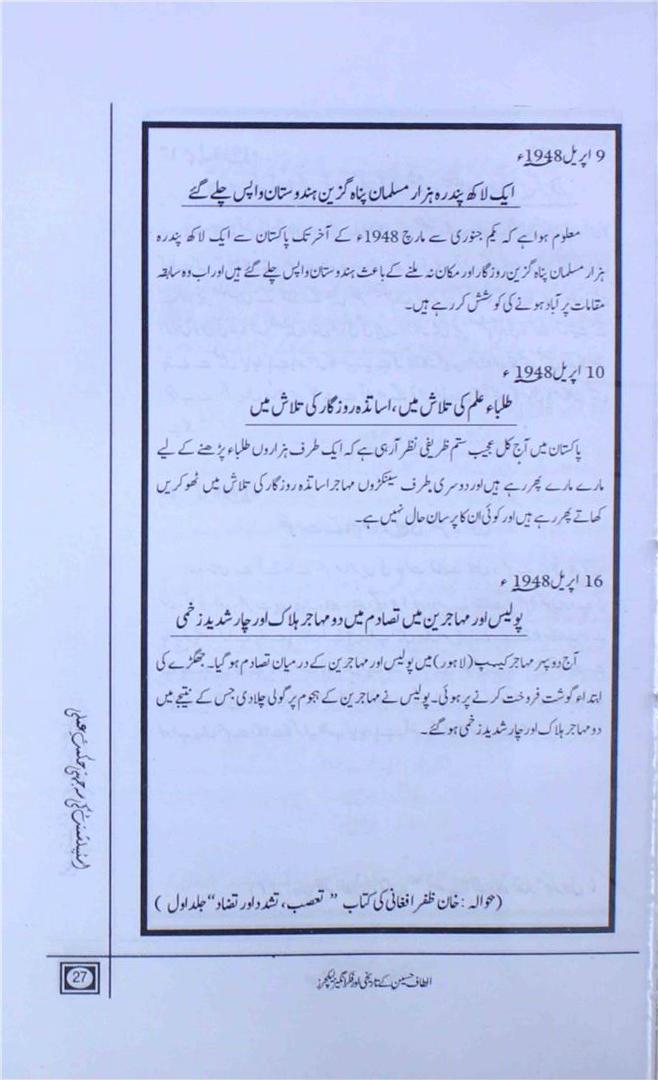 9 اپریل 1948ء
ایک لاکھ پندرہ ہزار مسلمان پناہ گزین ہندوستان واپس چلے گئے
معلوم ہوا ہے کہ یکم جنوری سے مارچ 1948ء کے آخر تک پاکستان سے ایک لاکھ پندرہ
ہزار مسلمان پناہ گزین روزگار اور مکان نہ ملنے کے باعث ہندوستان واپس چلے گئے ہیں اور اب وہ سابقہ
مقامات پر آباد ہونے کی کوشش کر رہے ہیں۔
10 اپریل 1948ء
طلباء علم کی تلاش میں، اساتذہ روزگار کی تلاش میں
پاکستان میں آج کل عجیب ستم ظریفی نظر آرہی ہے کہ ایک طرف ہزاروں طلباء پڑھنے کے لیے
مارے مارے پھر رہے ہیں اور دوسری طرف سینکڑوں مہاجر اساتذہ روزگار کی تلاش میں ٹھوکریں
کھاتے پھر رہے ہیں اور کوئی ان کا پرسان حال نہیں ہے۔
16 اپریل 1948ء
پولیس اور مہاجرین میں تصادم میں دو مہاجر ہلاک اور چار شدید زخمی
آج دوپہر مہاجر کیمپ (لاہور) میں پولیس اور مہاجرین کے درمیان تصادم ہو گیا۔ جھگڑے کی
ابتداء گوشت فروخت کرنے پر ہوئی۔ پولیس نے مہاجرین کے ہجوم پر گولی چلا دی جس کے نتیجے میں
دو مہاجر ہلاک اور چار شدید زخمی ہو گئے۔
(حوالہ: خان ظفر افغانی کی کتاب "تعصب، تشدد اور تضاد" جلد اول)
کی سہ جہتی حکمت عملی
الطاف حسین کے تاریخی اور فکر انگیز لیکچرز
27